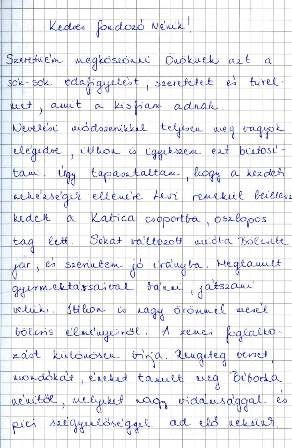 Kedves Gondozó Nénik!
Szeretném megköszönni Önöknek azt a
sok-sok odafigyelést, szeretetet és türel-
met, amit a kisfiam adnak.
Nevelési módszereikkel teljesen meg vagyok
elégedve, itthon is igyekszem ezt biztosí-
tani. Úgy tapasztaltam, hogy a kezdeti
nehézségek ellenére Levi remekül beillesz
kedett a Katica csoportba, oszlopos
tag lett. Sokat változott mióta bölcsibe
jár, és szerintem jó irányba. Megtanult
gyermektársaival lenni, játszani
velük. Itthon is nagy örömmel mesél
bölcsis élményeiről. A zenei foglalko-
zást különösen bírja. Rengeteg verset,
mondókát, éneket tanult meg Bíborka
nénitől, melyeket nagy vidámsággal és
pici szégyenlősséggel ad elő nekünk.